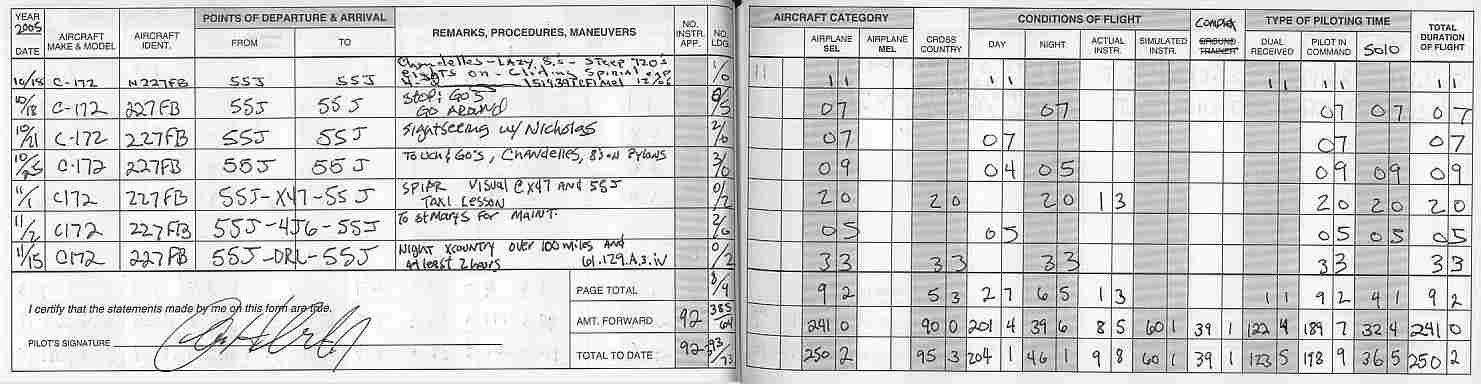 YEAR 2005 DATE AIRCRAFT MAKE & MODEL AIRCRAFT IDENT. POINTS OF DEPARTURE & ARRIVAL FROM TO REMARKS, PROCEDURES, MANEUVERS NO. INSTR. APP. NO. LDG. AIRCRAFT CATEGORY AIRPLANE SEL AIRPLANE MEL CROSS COUNTRY CONDITIONS OF FLIGHT DAY NIGHT ACTUAL INSTR. SIMULATED INSTR. COMPLEX GROUND TRAINER TYPE OF PILOTING TIME DUAL RECEIVED PILOT IN COMMAND SOLO TOTAL DURATION OF FLIGHT
10/18 C-172 N227FB 55J 55J Chandelles - LAZY 8s - Steep 720's 1/0 11 11 11 11 11
Eights on - Gliding Spiral
10/18 C-172 227FB 55J 55J Stop & GO's 07 07 07 07 07
GO AROUND
10/21 C-172 227FB 55J 55J Sightseeing w/ Nicholas 2/0 07 07 07 07
10/25 C-172 227FB 55J 55J Touch & GO's, Chandelles, 8's on Pylons 3/0 09 04 05 09 09 09
11/1 C172 227FB 55J-X47-55J VISUAL @ X47 AND 55J 0/2 20 20 20 13 20 20 20
TAXI LESSON
11/2 C172 227FB 55J-4J6-55J To St Marys For MAINT. 05 05 05 05 05
11/15 C172 227FB 55J-DRL-55J Night XCOUNTRY OVER 100 miles and 0/2 33 33 33 33 33
At least 2 hours 61.129.A.3.iv
PAGE TOTAL 8/9 92 53 27 65 13 11 92 41 92
I certify that the statements made by me on this form are true.
AMT. FORWARD 92 385/64 241 0 90 0 201 4 39 6 8 5 60 1 39 1 122 4 189 7 32 4 241 0
PILOT'S SIGNATURE
TOTAL TO DATE 92 393/73 250 2 95 3 204 1 46 1 9 8 60 1 39 1 123 5 198 9 36 5 250 2